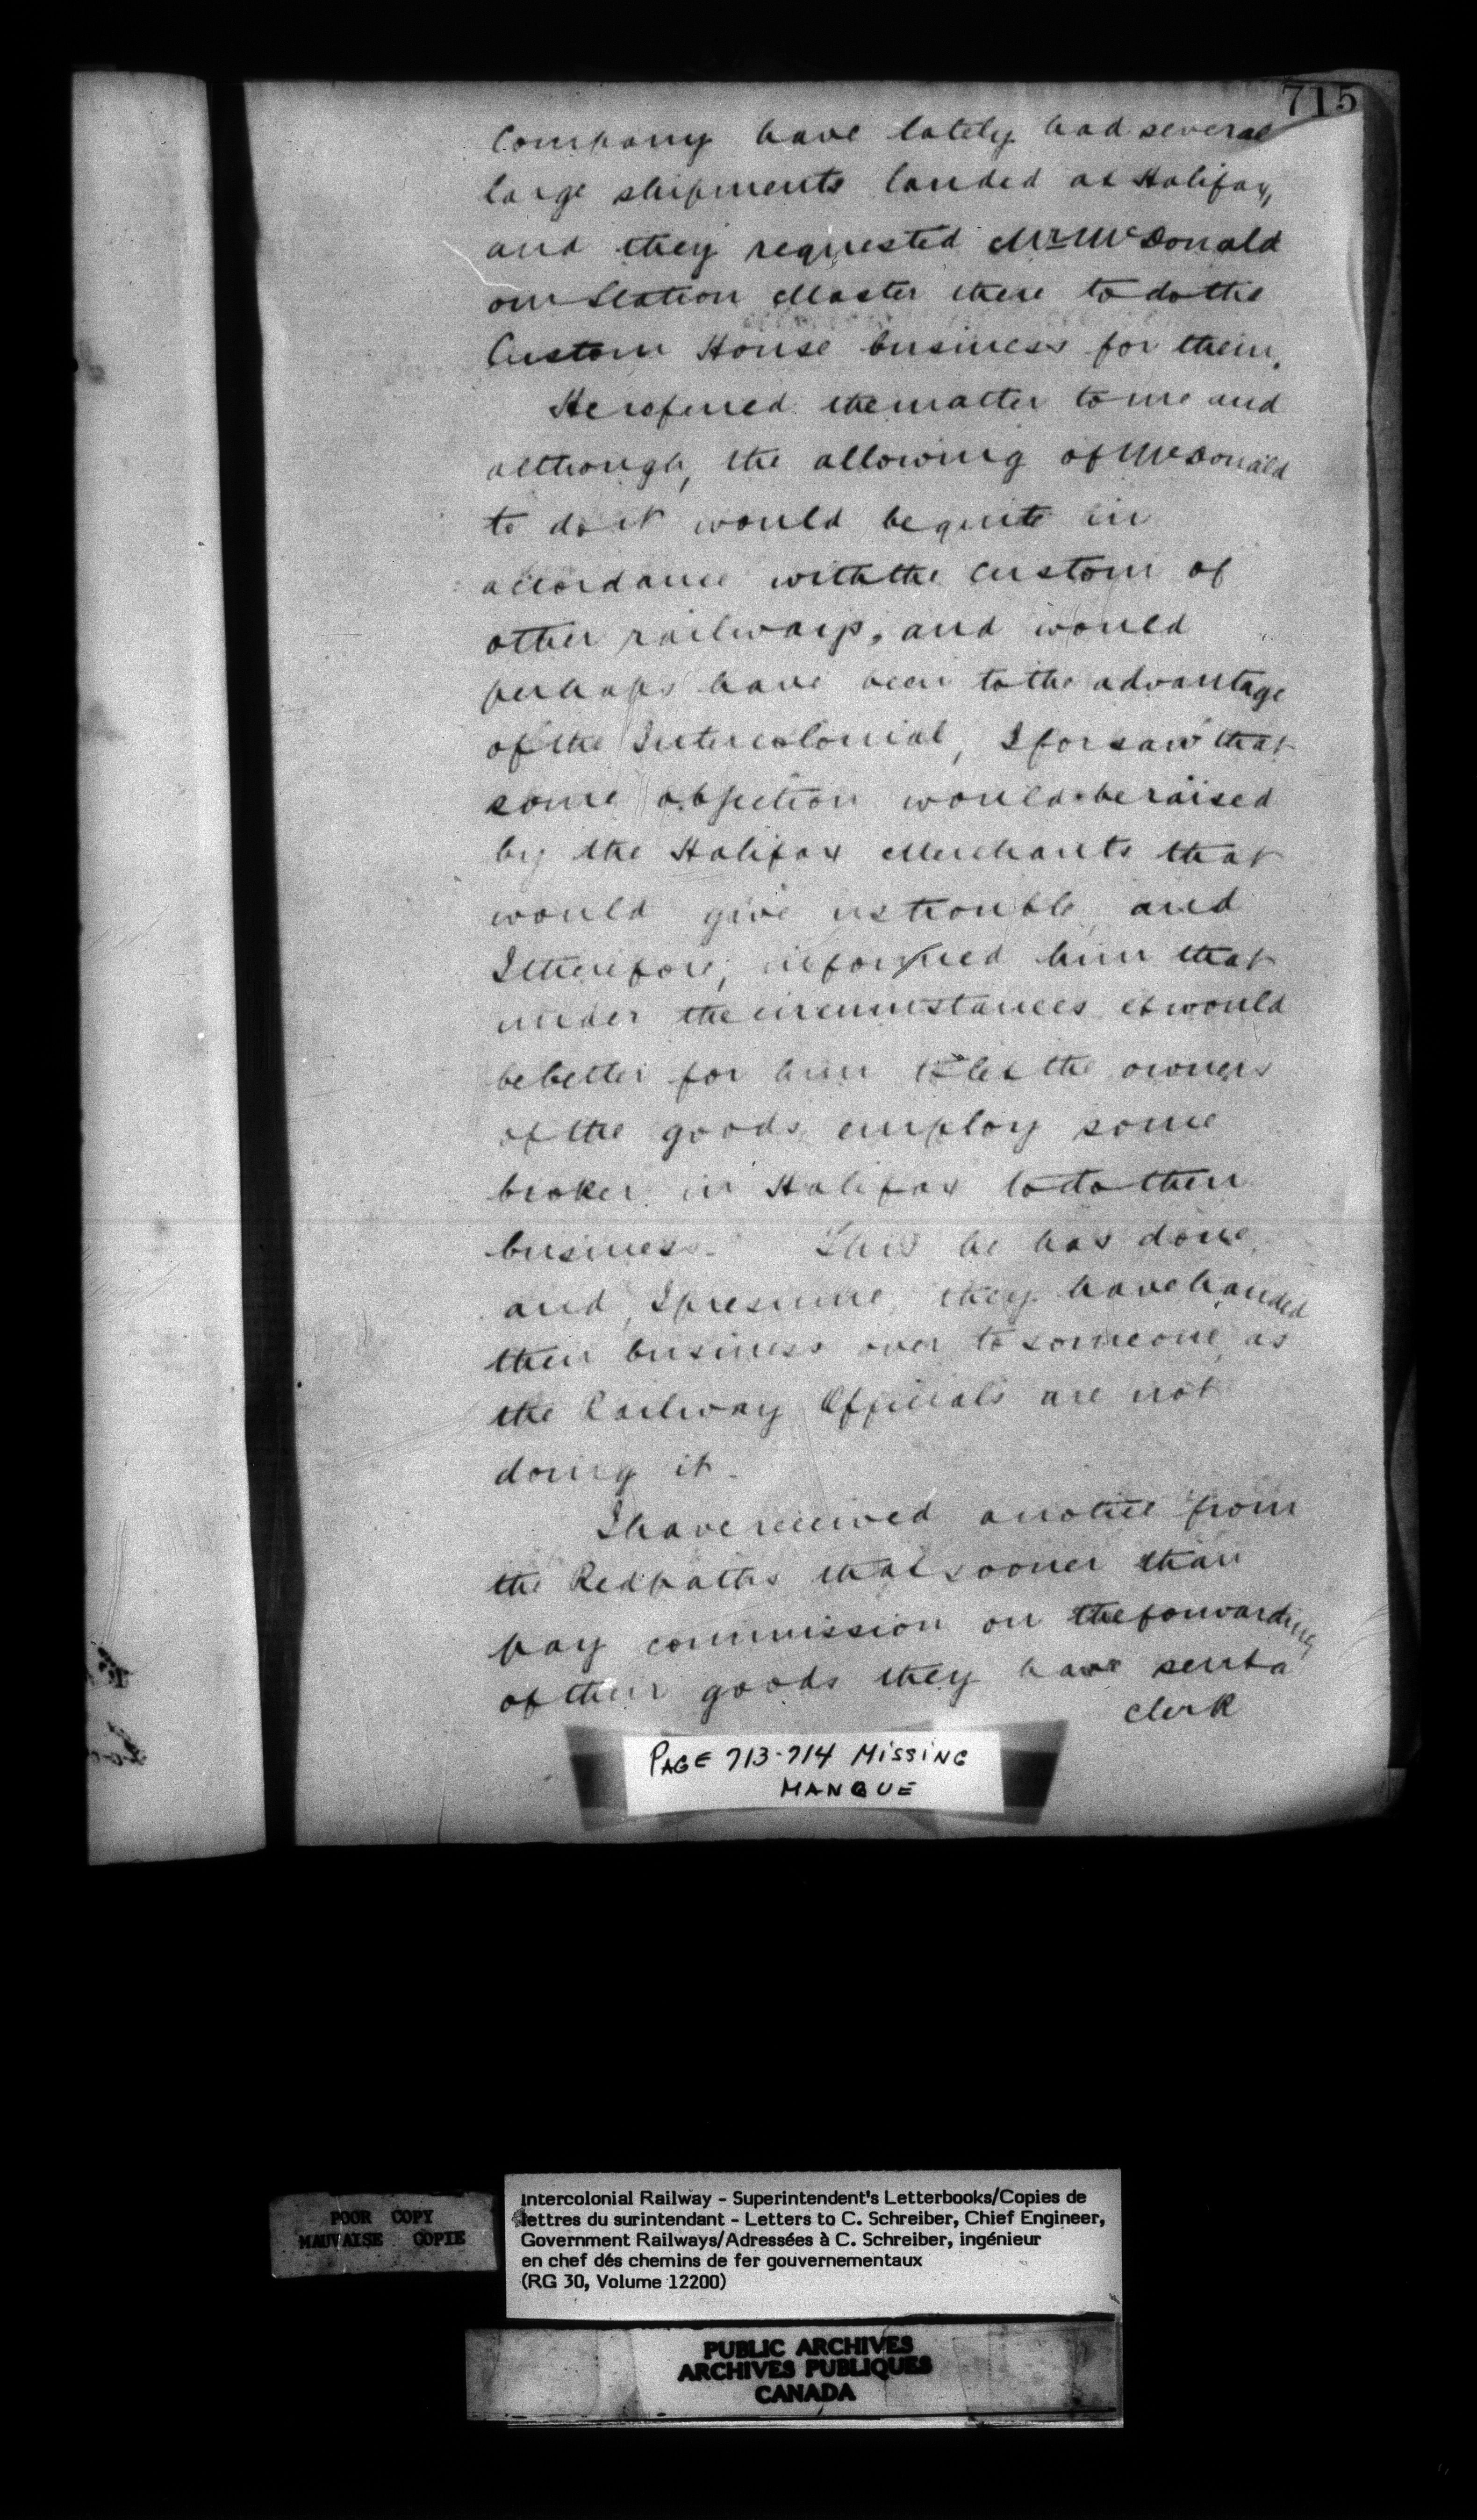 715
Company have lately had several
large shipments landed at Halifax,
and they requested Mr McDonald
our Station Master there to do the
Custom House business for them.
He referred the matter to me and
although, the allowing of McDonald
to do it would be quite in
accordance with the custom of
other railways, and would
perhaps have been to the advantage
of the Intercolonial, I forsaw that
some objection would be raised
by the Halifax Merchants that
would give us trouble and
I therefore, informed him that
under the circumstances it would
be better for him to let the owners
of the goods employ some
broker in Halifax to do their
business. This he has done,
and, I presume, they have handed
their business over to someone, as
the Railway Officials are not
doing it.
I have received a notice from
the Redpaths that sooner than
pay commission on the forwarding
of their goods they have sent a
clerk
PAGE 713-714 MISSING
MANQUE
POOR COPY
MAUVAISE COPIE
Intercolonial Railway - Superintendent's Letterbooks/Copies de
lettres du surintendant - Letters to C. Schreiber, Chief Engineer,
Government Railways/Adressées à C. Schreiber, ingénieur
en chef dés chemins de fer gouvernementaux
(RG 30, Volume 12200)
PUBLIC ARCHIVES
ARCHIVES PUBLIQUES
CANADA